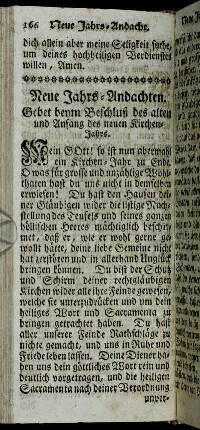 166 Neue Jahrs-Andacht.
dich allein aber meine Seligkeit suche,
um deines hochheiligen Verdienstes
willen, Amen.
Neue Jahrs-Andachten.
Gebet beym Beschluß des alten
und Anfang des neuen Kirchen-
Jahrs.
Mein GOtt! so ist nun abermahl
ein Kirchen-Jahr zu End.
O was für grosse und unzählige Wohl-
thaten hast du uns nicht in demselben
erwiesen! Du hast den Hauffen dei-
ner Gläubigen wider die listige Nach-
stellung des Teufels und seines gantzen
höllischen Heeres mächtiglich beschir-
met, daß er, wie er wohl gerne ge-
wollt hätte, deine liebe Gemeine nicht
hat zerstören und in allerhand Unglück
bringen können. Du bist der Schutz
und Schirm deiner rechtgläubigen
Kirchen wider alle ihre Feinde gewesen,
welche sie unterzudrücken und um dein
heiliges Wort und Sacramenta zu
bringen getrachtet haben. Du hast
aller unserer Feinde Rathschläge zu
nichte gemacht, und uns in Ruhe und
Friede leben lassen. Deine Diener ha-
ben uns dein göttliches Wort rein und
deutlich vorgetragen, und die heiligen
Sacramenta nach deiner Verordnung
unver-